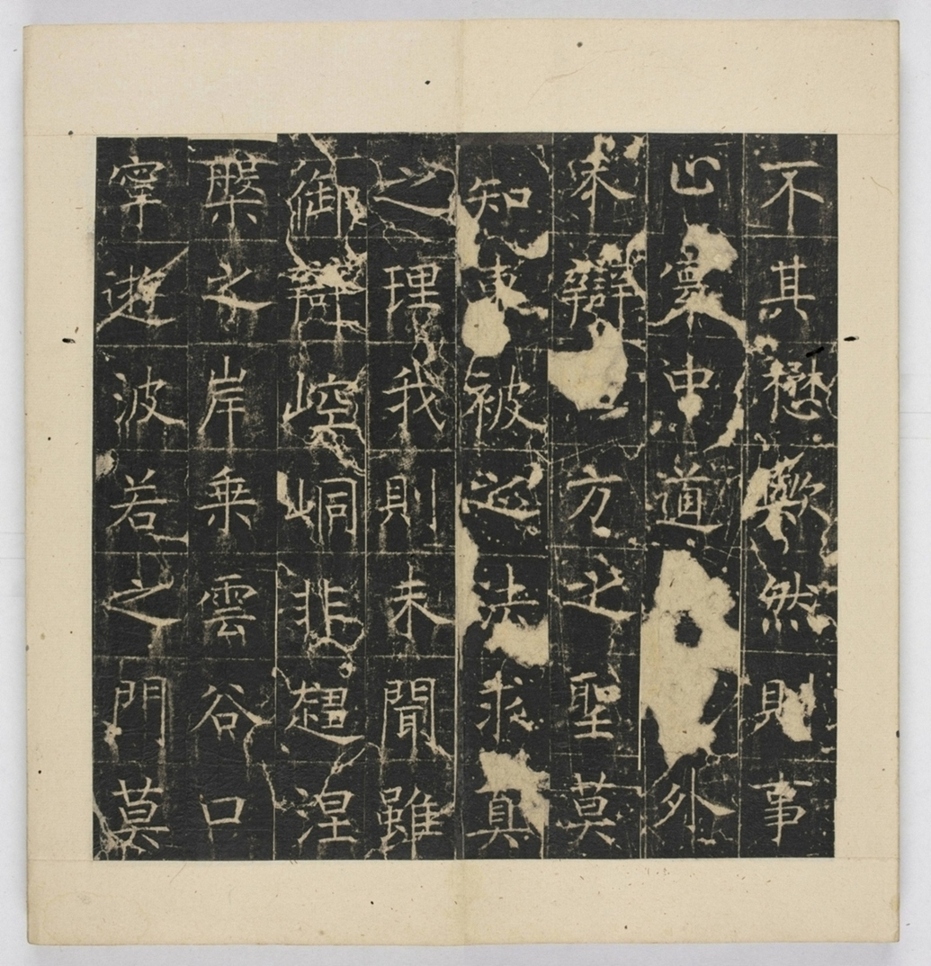 不其懋歟然則事
止寰中道外
未辯方之聖莫
知東被之法求真
之理我則未聞雖
御辯崆峒非趨涅
槃之岸乗雲谷口
寧遊波若之門莫